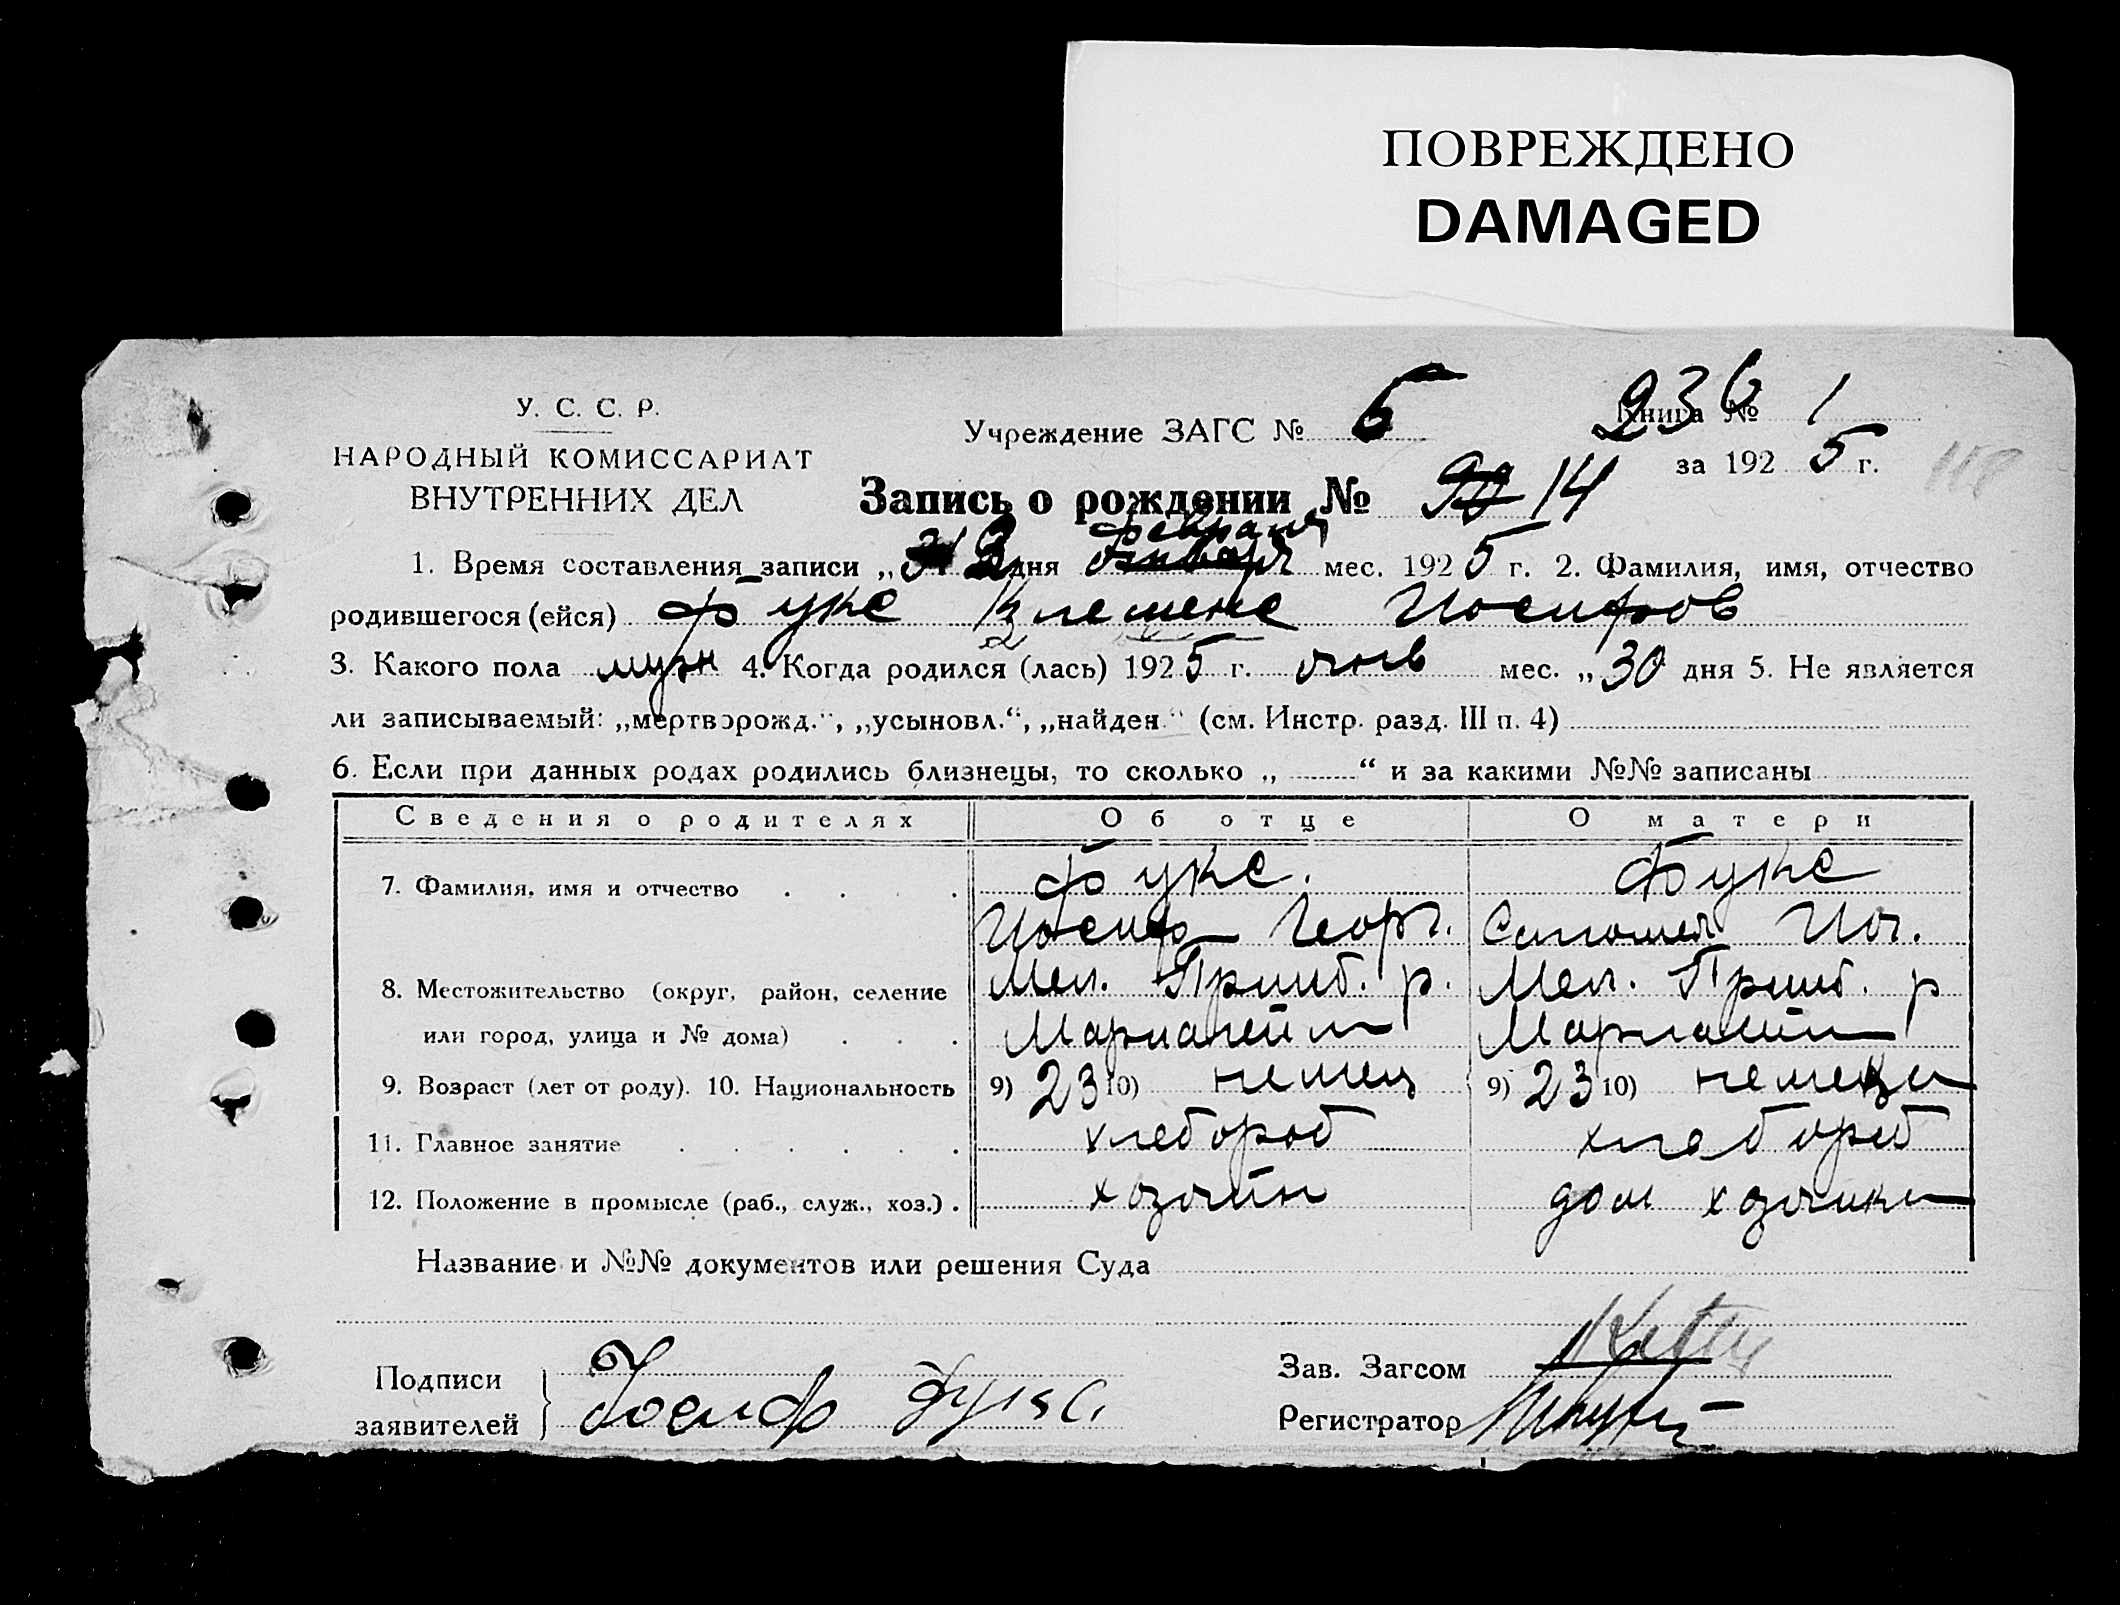 ПОВРЕЖДЕНО
DAMAGED
У. С. С. Р.
НАРОДНЫЙ КОМИССАРИАТ
ВНУТРЕННИХ ДЕЛ
Учреждение ЗАГС № 5
236
Книга № 1
за 1925 г.
Запись о рождении № 14
февраля
1. Время составления записи „ 2 дня января мес. 1925 г. 2. Фамилия, имя, отчество
родившегося (ейся) Фукс Клеменс Иосифов
3. Какого пола муж 4. Когда родился (лась) 1925 г. янв мес. „ 30 дня 5. Не является
ли записываемый: „мертворожд.“, „усыновл.“, „найден“ (см. Инстр. разд. III п. 4)
6. Если при данных родах родились близнецы, то сколько „ “ и за какими №№ записаны
Сведения о родителях Об отце О матери
7. Фамилия, имя и отчество Фукс. Фукс
Иосиф Георг. Саломея
8. Местожительство (округ, район, селение Мел. Пришб. р. Мел. Пришб. р
или город, улица и № дома) Мариагейм Мариагейм
9. Возраст (лет от роду). 10. Национальность 9) 23 10) немец 9) 23 10) немецк
11. Главное занятие хлебороб хлебороб
12. Положение в промысле (раб., служ., хоз.) хозяин дом хозяйка
Название и №№ документов или решения Суда
Подписи
заявителей } Иосиф Фукс.
Зав. Загсом
Регистратор